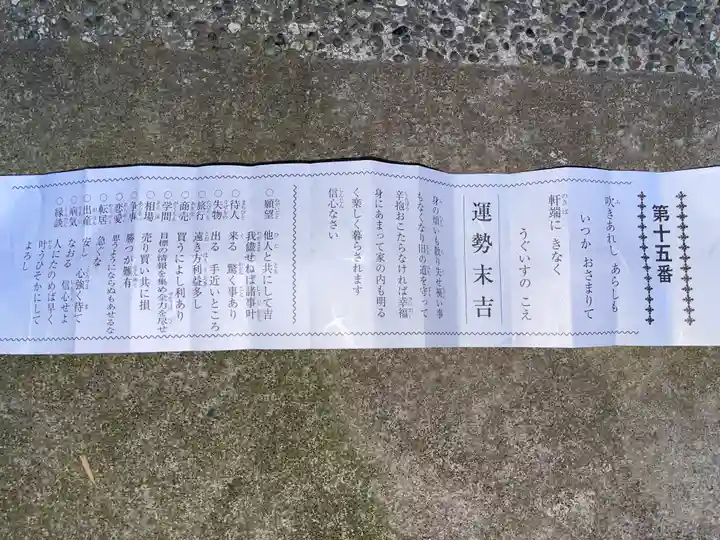 第十五番
吹きあれし あらしも
いつか おさまりて
軒端に きなく
うぐいすの こえ
運勢末吉
身の煩いも散り失せ禍い事
もなくなり旧の道を守って
辛抱おこたらなければ幸福
身にあまって家の内も明る
く楽しく暮らされます
信心なさい
○願望 他人と共にして吉
我儘せねば諸事叶
○待人 来る 驚く事あり
○失物 出る 手近いところ
○旅行 遠き方利益多し
○商売 買うによし利あり
○学問 目標の情報を集め全力を尽せ
○相場 売り買い共に損
○争事 勝つが難有
○恋愛 思うようにならぬもあせるな
○転居 急ぐな
○出産 安し 心強く待て
○病気 なおる 信心せよ
○縁談 人にたのめば早く
叶うおろそかにして
よろし